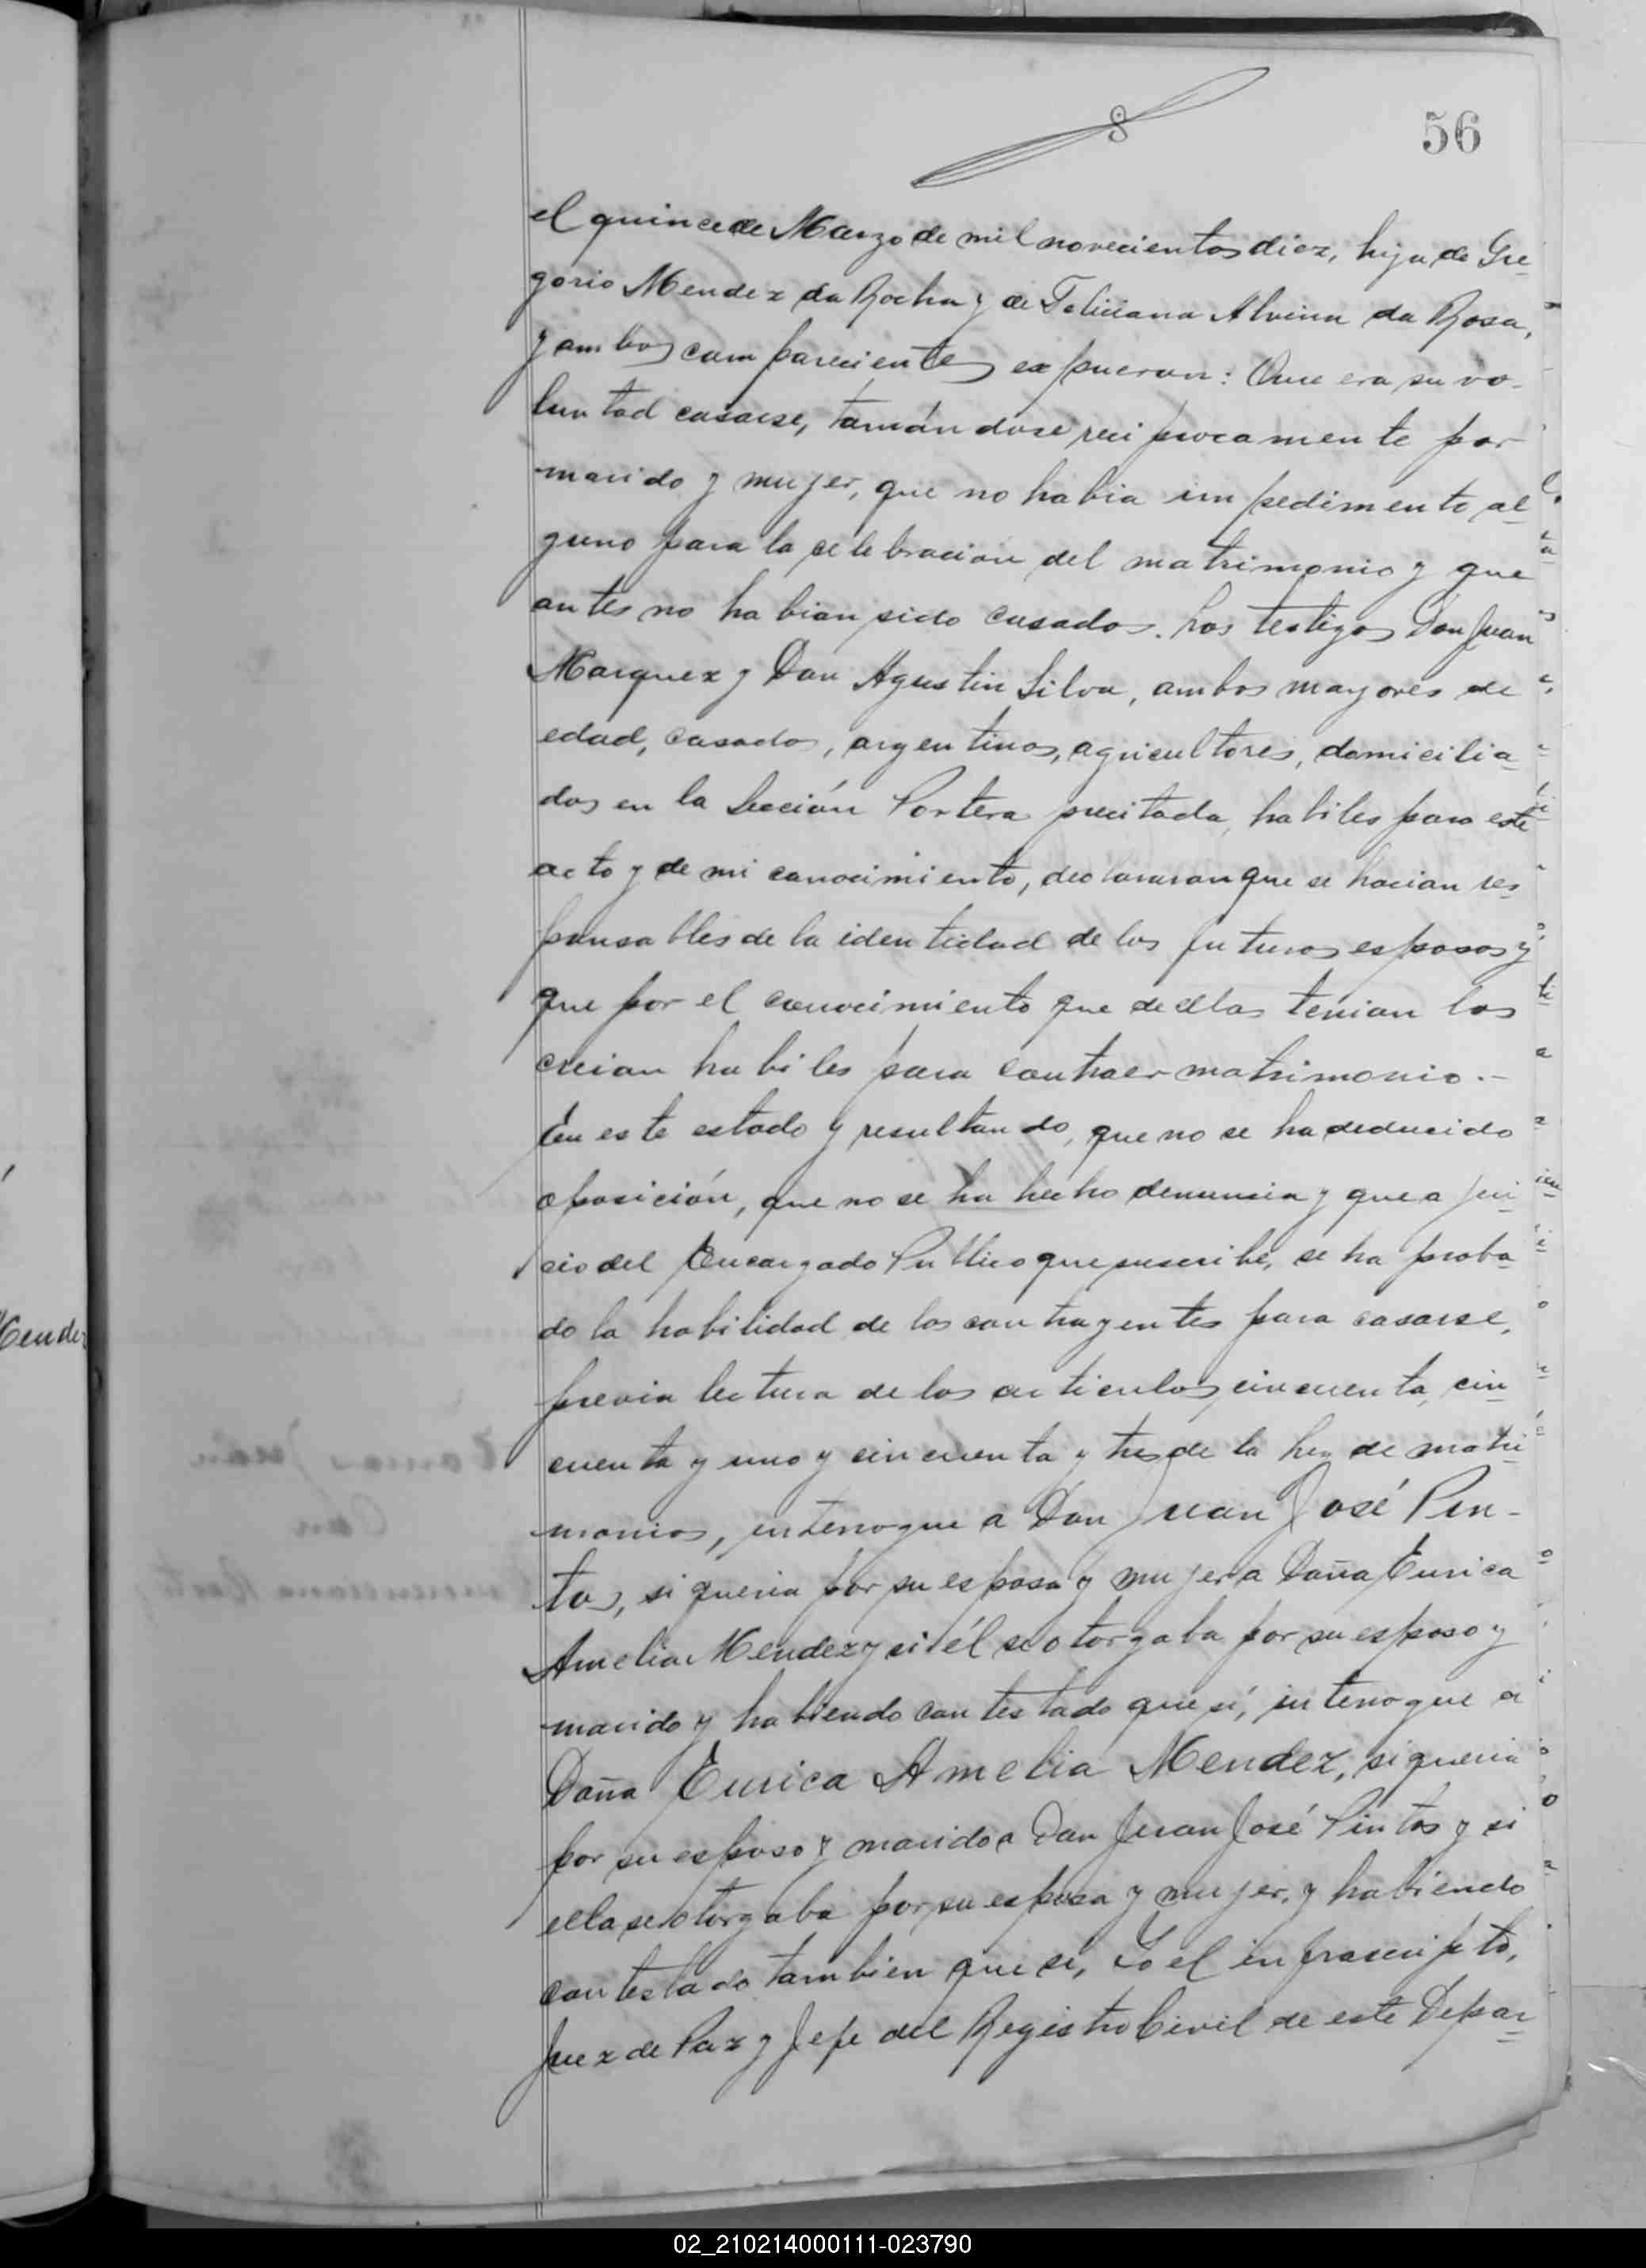 56
el quince de Marzo de mil novecientos diez, hija de Gre-
gorio Mendez da Rocha y de Feliciana Alvina da Rosa,
y ambos comparecientes expueron: Que era su vo-
luntad casarse, tomándose reciprocamente por
marido y mujer, que no habia impedimento al-
guno para la celebración del matrimonio y que
antes no habian sido casados. Los testigos Don Juan
Marquez y Don Agustin Silva, ambos mayores de
edad, casados, argentinos, agricultores, domicilia-
dos en la Sección Portera precitada, habiles para este
acto y de mi conocimiento, declararon que se hacian res-
ponsables de la identidad de los futuros esposos y
que por el conocimiento que de ellos tenian los
creian habiles para contraer matrimonio.-
En este estado y resultando, que no se ha deducido
oposición, que no se ha hecho denuncia y que a jui-
cio del Encargado Publico que suscribe, se ha proba-
do la habilidad de los contrayentes para casarse,
previa lectura de los articulos cincuenta, cin-
cuenta y uno y cincuenta y tres de la Ley de matri-
monios, interrogue a Don Juan José Pin-
tos, si queria por su esposa y mujer a Doña Eurica
Amelia Mendez y si él se otorgaba por su esposo y
marido y habiendo contestado que sí, interrogue a
Doña Eurica Amelia Mendez, si queria
por su esposo y marido a Don Juan José Pintos y si
ella se otorgaba por su esposa y mujer, y habiendo
contestado tambien que si, Yo el infrascripto,
Juez de Paz y Jefe del Registro Civil de este Depar-
Mendez
02_210214000111-023790